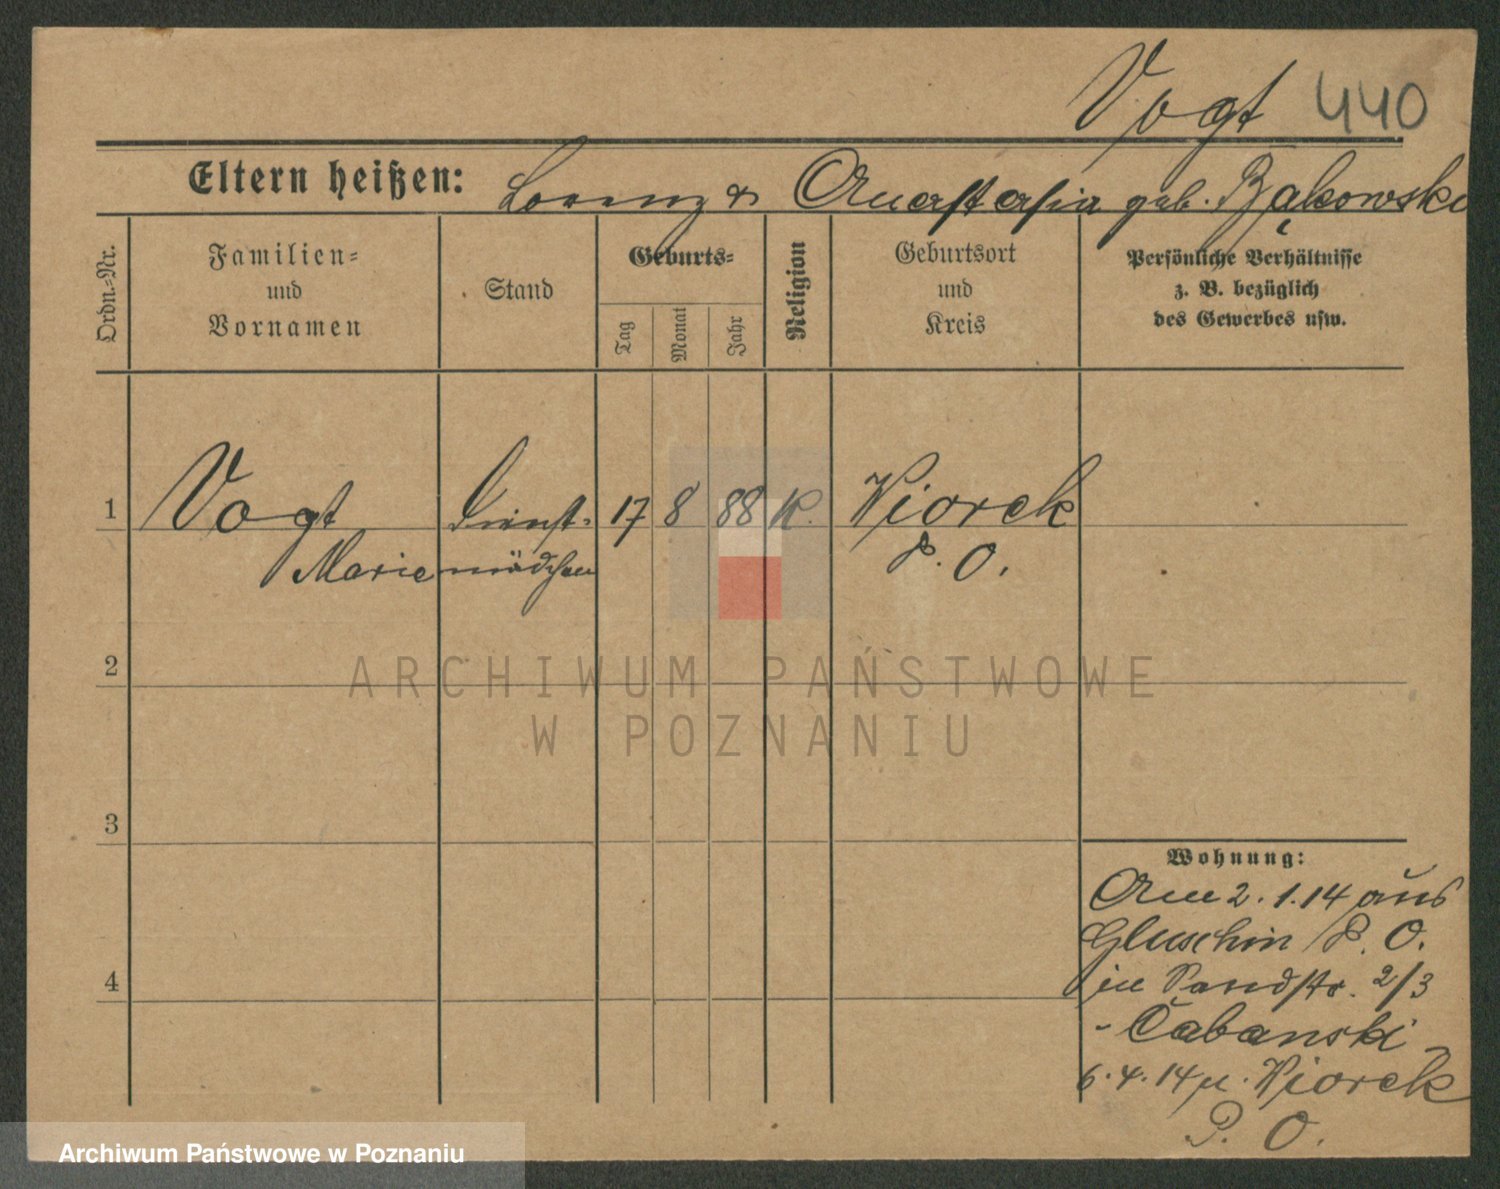 Vogt 440
Eltern heißen: Lorenz & Anastasia geb. Bąkowski
Ordn.-Nr.
Familien-
und
Vornamen
Stand
Geburts-
Tag
Monat
Jahr
Religion
Geburtsort
und
Kreis
Persönliche Verhältnisse
z. B. bezüglich
des Gewerbes usw.
1 Vogt Dienst- 17 8 88 K. Wiorek
Marie mädchen P. O.
2
3
4
Wohnung:
Am 2. 1. 14 aus
Gluschin P. O.
in Sandstr. 2/3
- Cabanski -
6. 4. 14 n. Wiorek
P. O.
ARCHIWUM PAŃSTWOWE
W POZNANIU
Archiwum Państwowe w Poznaniu